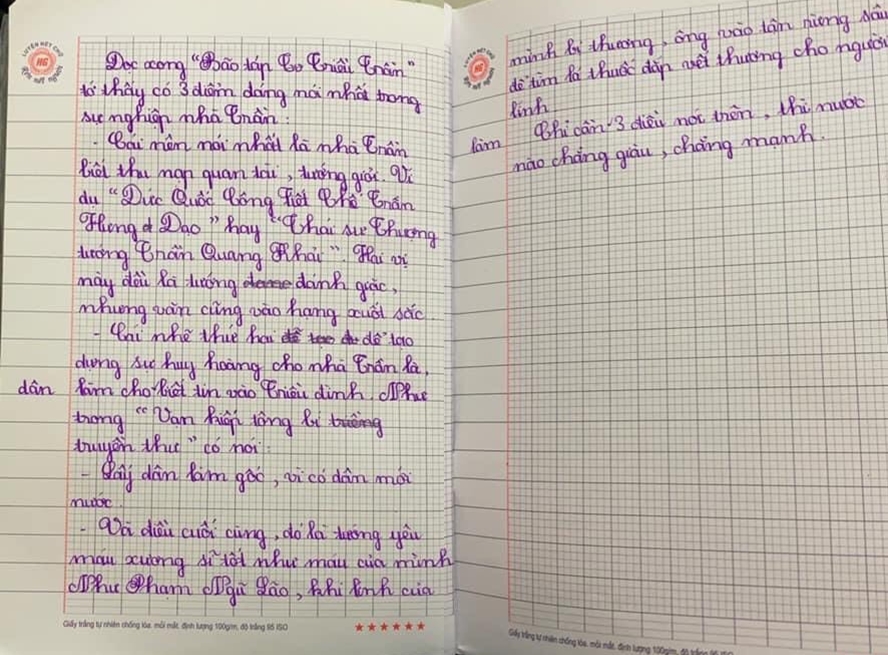 LUYỆN NÉT CHỮ
HG
RÈN NẾT NGƯỜI
Đọc xong "Bão táp Cơ Triều Trần"
tớ thầy có 3 điểm đáng nói nhất trong
sự nghiệp nhà Trần:
- Cái nên nói nhất là nhà Trần
biết thu nạp quan tài, tướng giỏi. Ví
dụ "Đức Quốc Công Tiết Chế Trần
Hưng đ Đạo" hay "Thái sư Thượng
tướng Trần Quang Khải". Hai vị
này đều là tướng đánh giặc,
nhưng văn cũng vào hạng xuất sắc
- Cái nhẽ thứ hai để tạo
dựng sự huy hoàng cho nhà Trần là,
dân làm cho biết tin vào Triều đình. Như
trong "Vạn kiếp tông bí
truyền thư" có nói:
- Lấy dân làm gốc, vì có dân mới
nước.
- Và điều cuối cùng, đó là tướng yêu
máu xương sĩ tốt như máu của mình
Như Phạm Ngũ Lão, khi lính của
Giấy trắng tự nhiên chống lóa, mỏi mắt, định lượng 100g/m, độ trắng 95 ISO
mình bị thương, ông vào tận rừng sâu
để tìm lá thuốc đắp vết thương cho người
lính
làm Chỉ cần 3 điều nói trên, thì nước
nào chẳng giàu, chẳng mạnh.
Giấy trắng tự nhiên chống lóa, mỏi mắt, định lượng 100g/m, độ trắng 95 ISO